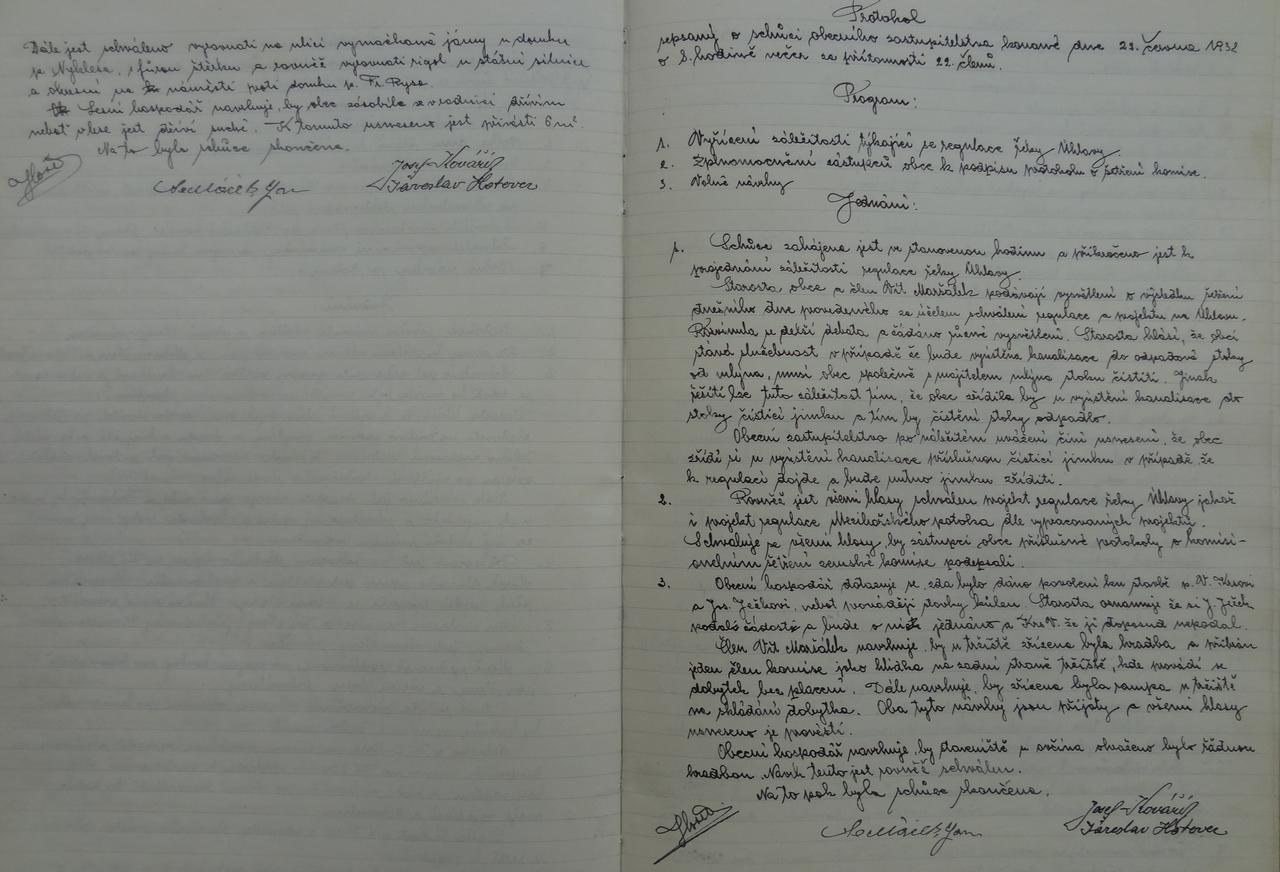 Dále jest schváleno vyrovnati na ulici vymačkané jámy u domku
p. Nyklesa, s fůrou štěrku a rovněž vyrovnati rigol u státní silnice
a okresní na náměstí proti domku p. Fr. Rysa.
Lesní hospodář navrhuje, by obec zásobila se v radnici dřívím
neboť v lese jest dříví suché. K tomuto usneseno jest přivésti 6 m³.
Na to byla schůze skončena.
Josef Kovářík
Jaroslav Hotovec
Protokol
sepsaný o schůzi obecního zastupitelstva konané dne 23. června 1932
o 8. hodině večer za přítomnosti 22. členů.
Program:
1. Vyřízení záležitosti týkající se regulace řeky Úhlavy.
2. Zplnomocnění zástupců obce k podpisu protokolu o šetření komise.
3. Volné návrhy
Jednání:
1. Schůze zahájena jest ve stanovenou hodinu a přikročeno jest k
projednání záležitosti regulace řeky Úhlavy.
Starosta obce a člen Vít Maršálek podávají vysvětlení o výsledku šetření
dnešního dne provedeného za účelem schválení regulace a projektu na Úhlavu.
Rozvinula se delší debata a žádáno různé vysvětlení. Starosta hlásí, že obci
stává služebnost v případě že bude vyústěna kanalisace do odpadové stoky
od mlýna, musí obec společně s majitelem mlýna stoku čistiti. Jinak
řešiti lze tuto záležitost tím, že obec zřídila by u vyústění kanalisace do
stoky čistící jímku a tím by čistění stoky odpadlo.
Obecní zastupitelstvo po náležitém uvážení činí usnesení, že obec
zřídí si u vyústění kanalisace příslušnou čistící jímku v případě, že
k regulaci dojde a bude nutno jímku zříditi.
2. Rovněž jest všemi hlasy schválen projekt regulace řeky Úhlavy jakož
i projekt regulace Mezihořského potoka dle vypracovaných projektů.
Schvaluje se všemi hlasy, by zástupci obce příslušné protokoly o komisi-
onelním šetření zemské komise podepsali.
3. Obecní hospodář dotazuje se, zda bylo dáno povolení ku stavbě p. V.
a Jos. Ježkovi, neboť provádějí stavby kůlen. Starosta oznamuje že si J. Ježek
podal žádost a bude o ní jednáno a V. že ji doposud nepodal.
Člen Vít Maršálek navrhuje, by u tržiště zřízena byla hradba a přibrán
jeden člen komise jako hlídka na zadní straně tržiště, kde provádí se
dobytek bez placení. Dále navrhuje, by zřízena byla rampa u tržiště
na skládání dobytka. Oba tyto návrhy jsou přijaty a všemi hlasy
usneseno je provésti.
Obecní hospodář navrhuje, by staveniště u ovčína ohraženo bylo řádnou
hradbou. Návrh tento jest rovněž schválen.
Na to pak byla schůze skončena.
Josef Kovářík
Jaroslav Hotovec